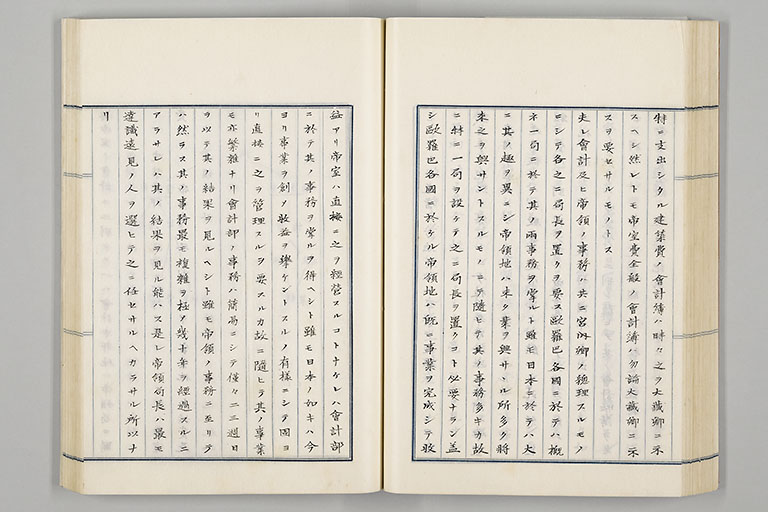 特ニ支出シタル建築費ノ會計簿ハ時々之ヲ大藏卿ニ示
スヘシ然レトモ帝室費全般ノ會計簿ハ勿論大藏卿ニ示
スヲ要セサルモノトス
夫レ會計及ヒ帝領ノ事務ハ共ニ宮内卿ノ總理スルモノ
ニシテ各之ニ局長ヲ置クヲ要ス歐羅巴各國ニ於テハ概
ネ一局ニ於テ其ノ兩事務ヲ掌ルト雖モ日本ニ於テハ大
ニ其ノ趣ヲ異ニシ帝領地ハ未タ業ヲ興サヽル所多ク將
来之ヲ興サントスルモノニテ隨ヒテ其ノ事務多キカ故
ニ特ニ一局ヲ設ケテ之ニ局長ヲ置クコト必要ナラン蓋
シ歐羅巴各國ニ於ケル帝領地ハ既ニ事業ヲ完成シテ收
益アリ帝室ハ直接ニ之ヲ經營スルコトナケレハ會計部
ニ於テ其ノ事務ヲ掌ルヲ得ヘシト雖モ日本ノ如キハ今
ヨリ事業ヲ創メ收益ヲ擧ケントスルノ有樣ニシテ固ヨ
リ直接ニ之ヲ管理スルヲ要スルカ故ニ隨ヒテ其ノ事業
モ亦繁雜ナリ會計部ノ事務ハ簡易ニシテ僅々二三週日
ヲ以テ其ノ結果ヲ見ルヘシト雖モ帝領ノ事務ニ至リテ
ハ然ラス其ノ事務最モ複雜ヲ極メ幾十年ヲ經過スルニ
アラサレハ其ノ結果ヲ見ル能ハス是レ帝領局長ハ最モ
達識遠見ノ人ヲ選ヒテ之ニ任セサルヘカラサル所以ナ
リ